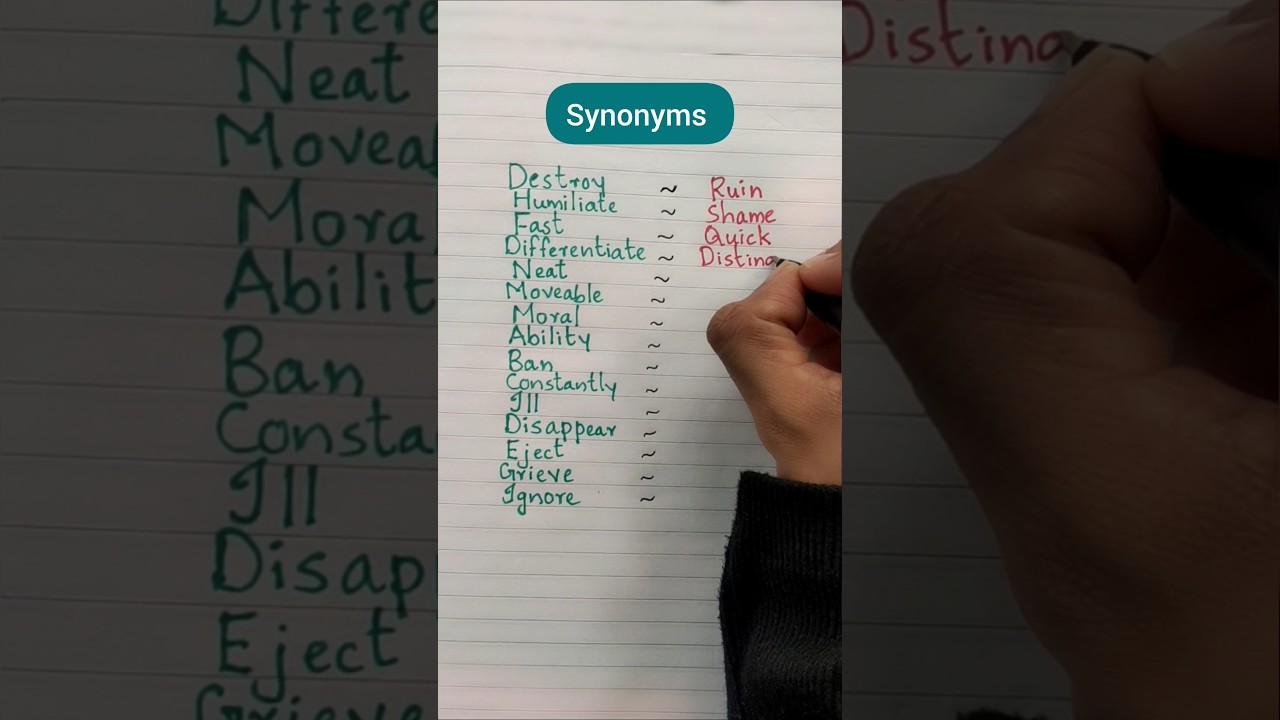 Synonyms
Destroy ~ Ruin
Humiliate ~ Shame
Fast ~ Quick
Differentiate ~ Distinc
Neat ~
Moveable ~
Moral ~
Ability ~
Ban ~
Constantly ~
Ill ~
Disappear ~
Eject ~
Grieve ~
Ignore ~